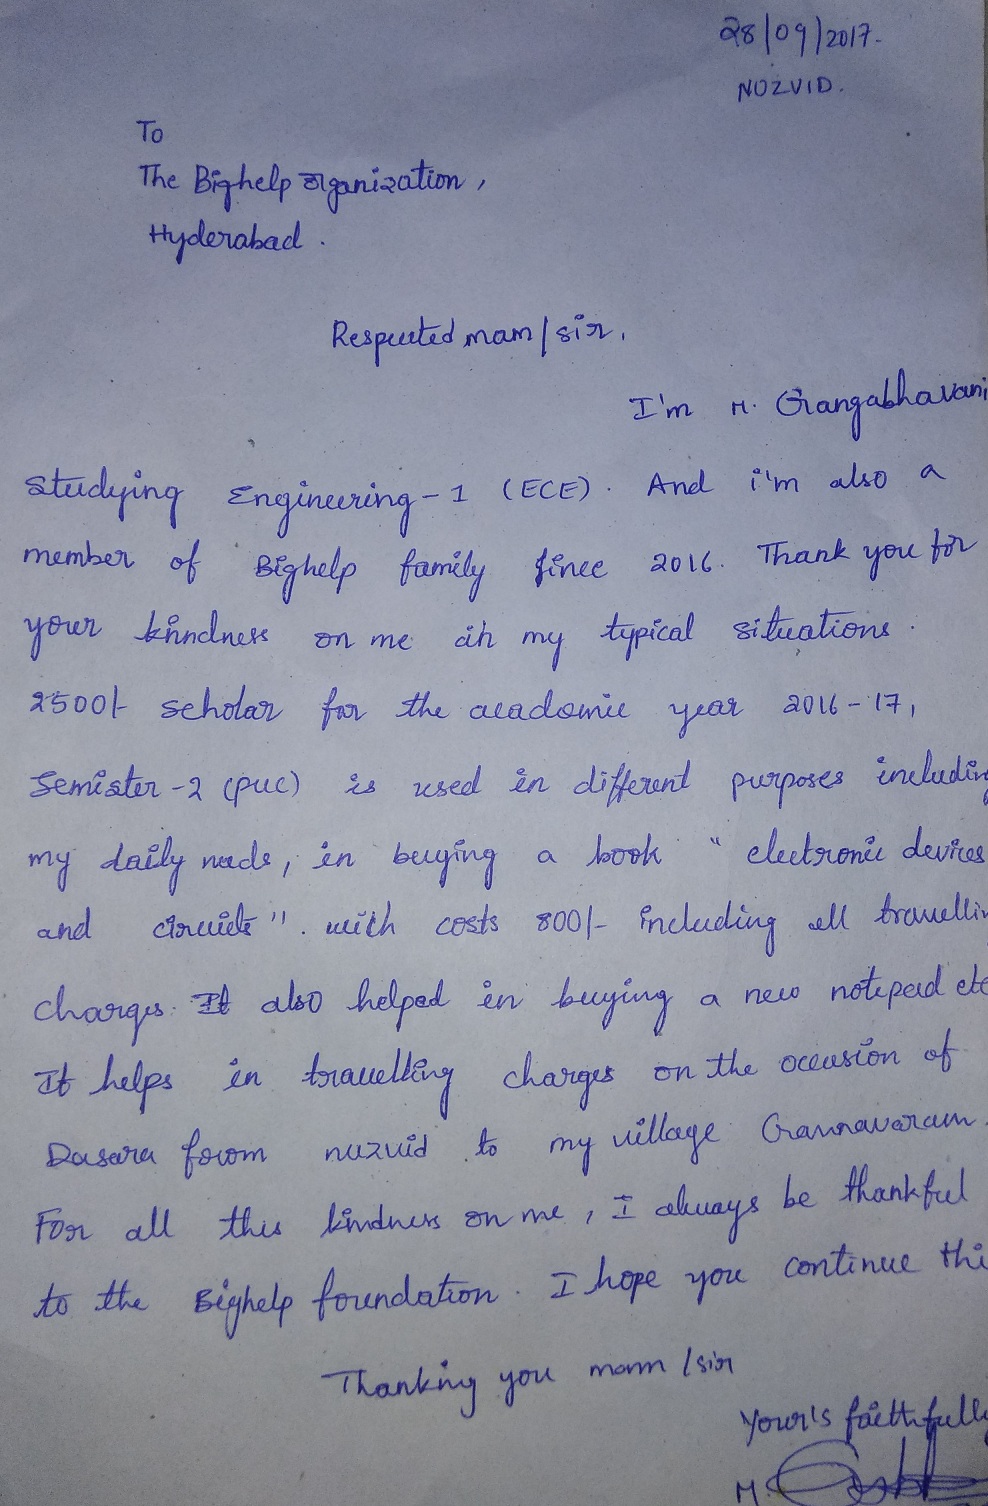 28/09/2017.
NOZVID.
To
The Bighelp organization,
Hyderabad.
Respected mam/sir,
I'm M. Gangabhavani
studying Engineering-1 (ECE). And i'm also a
member of Bighelp family since 2016. Thank you for
your kindness on me in my typical situations.
2500/- scholar for the academic year 2016-17,
Semister-2 (puc) is used in different purposes includin
my daily needs, in buying a book "electronic devices
and circuits". with costs 800/- including all travellin
charges. It also helped in buying a new notepad etc
It helps in travelling charges on the occasion of
Dasara from nuzvid to my village Gannavaram.
For all this kindness on me, I always be thankful
to the Bighelp foundation. I hope you continue thi
Thanking you mam /sir
Your's faithfully
M.